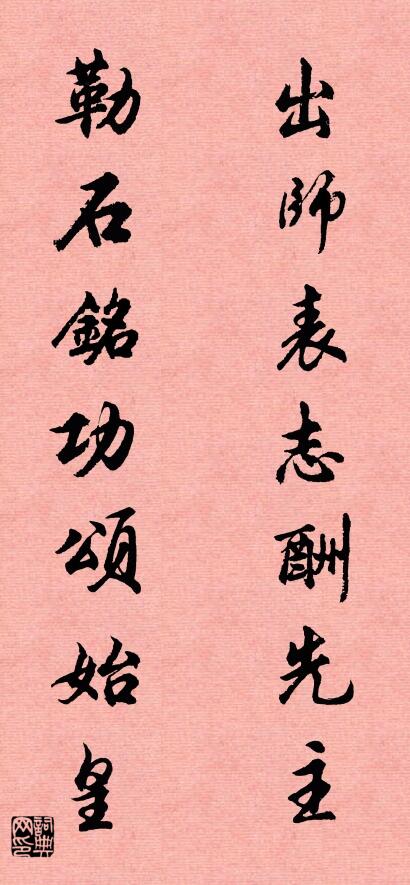 出師表志酬先主
勒石銘功頌始皇
詞典网印